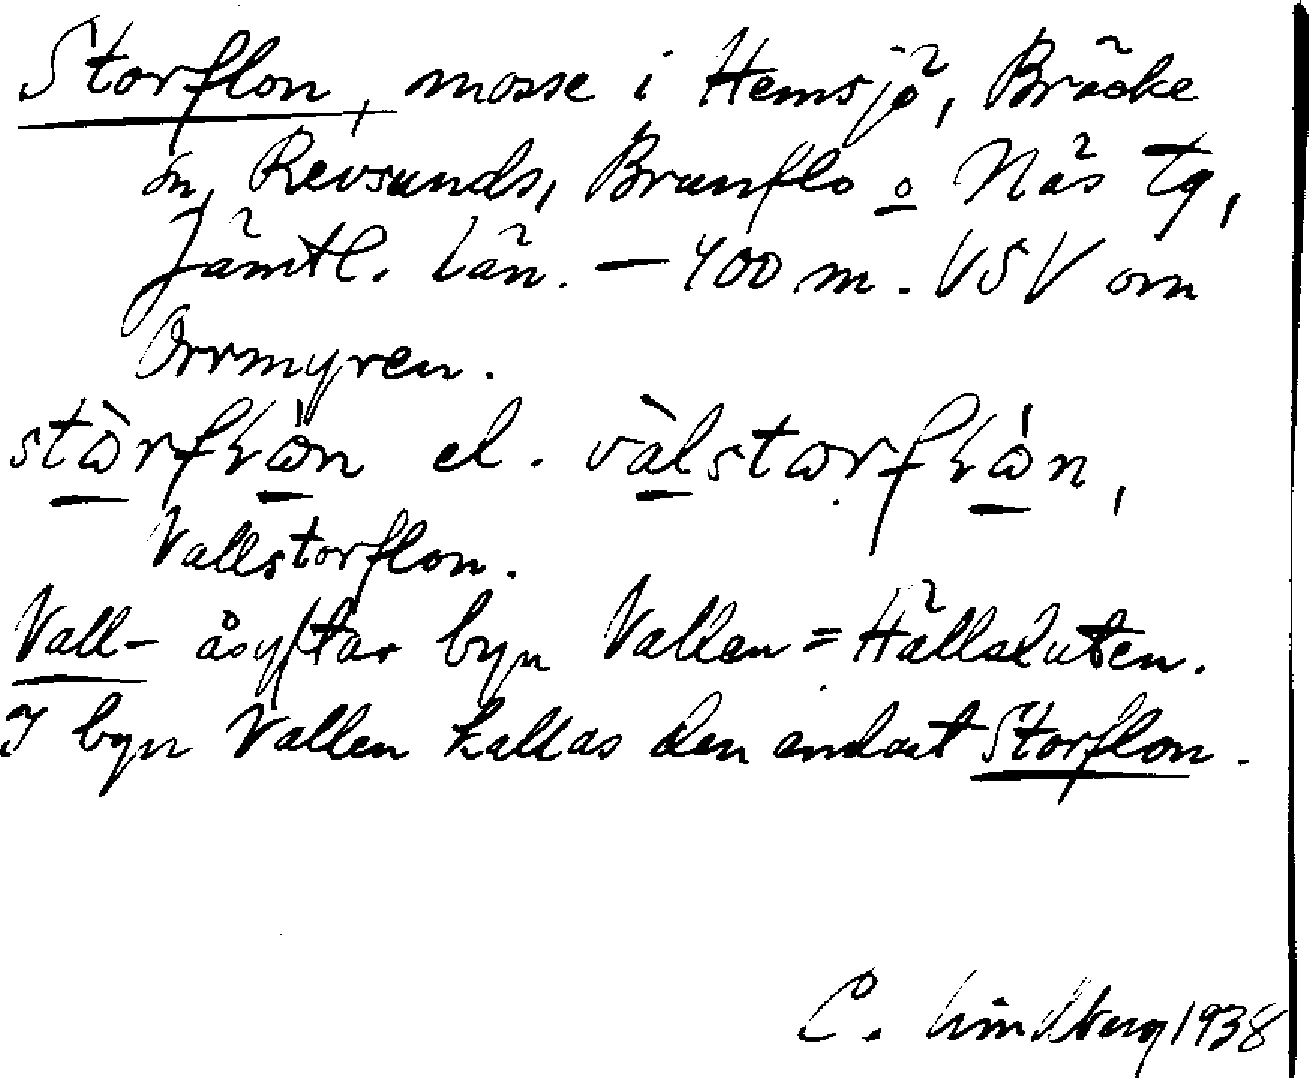 Storflon, mosse i Hemsjö, Bräcke
sn, Revsunds, Brunflo o Näs tg,
Jämtl. län. – 400 m. VSV om
Orrmyren.
el.
Vallstorflon.
Vall- åsyftar byn Vallen = Hällsluten.
I byn Vallen kallas den endast Storflon.
C. Lindberg 1938